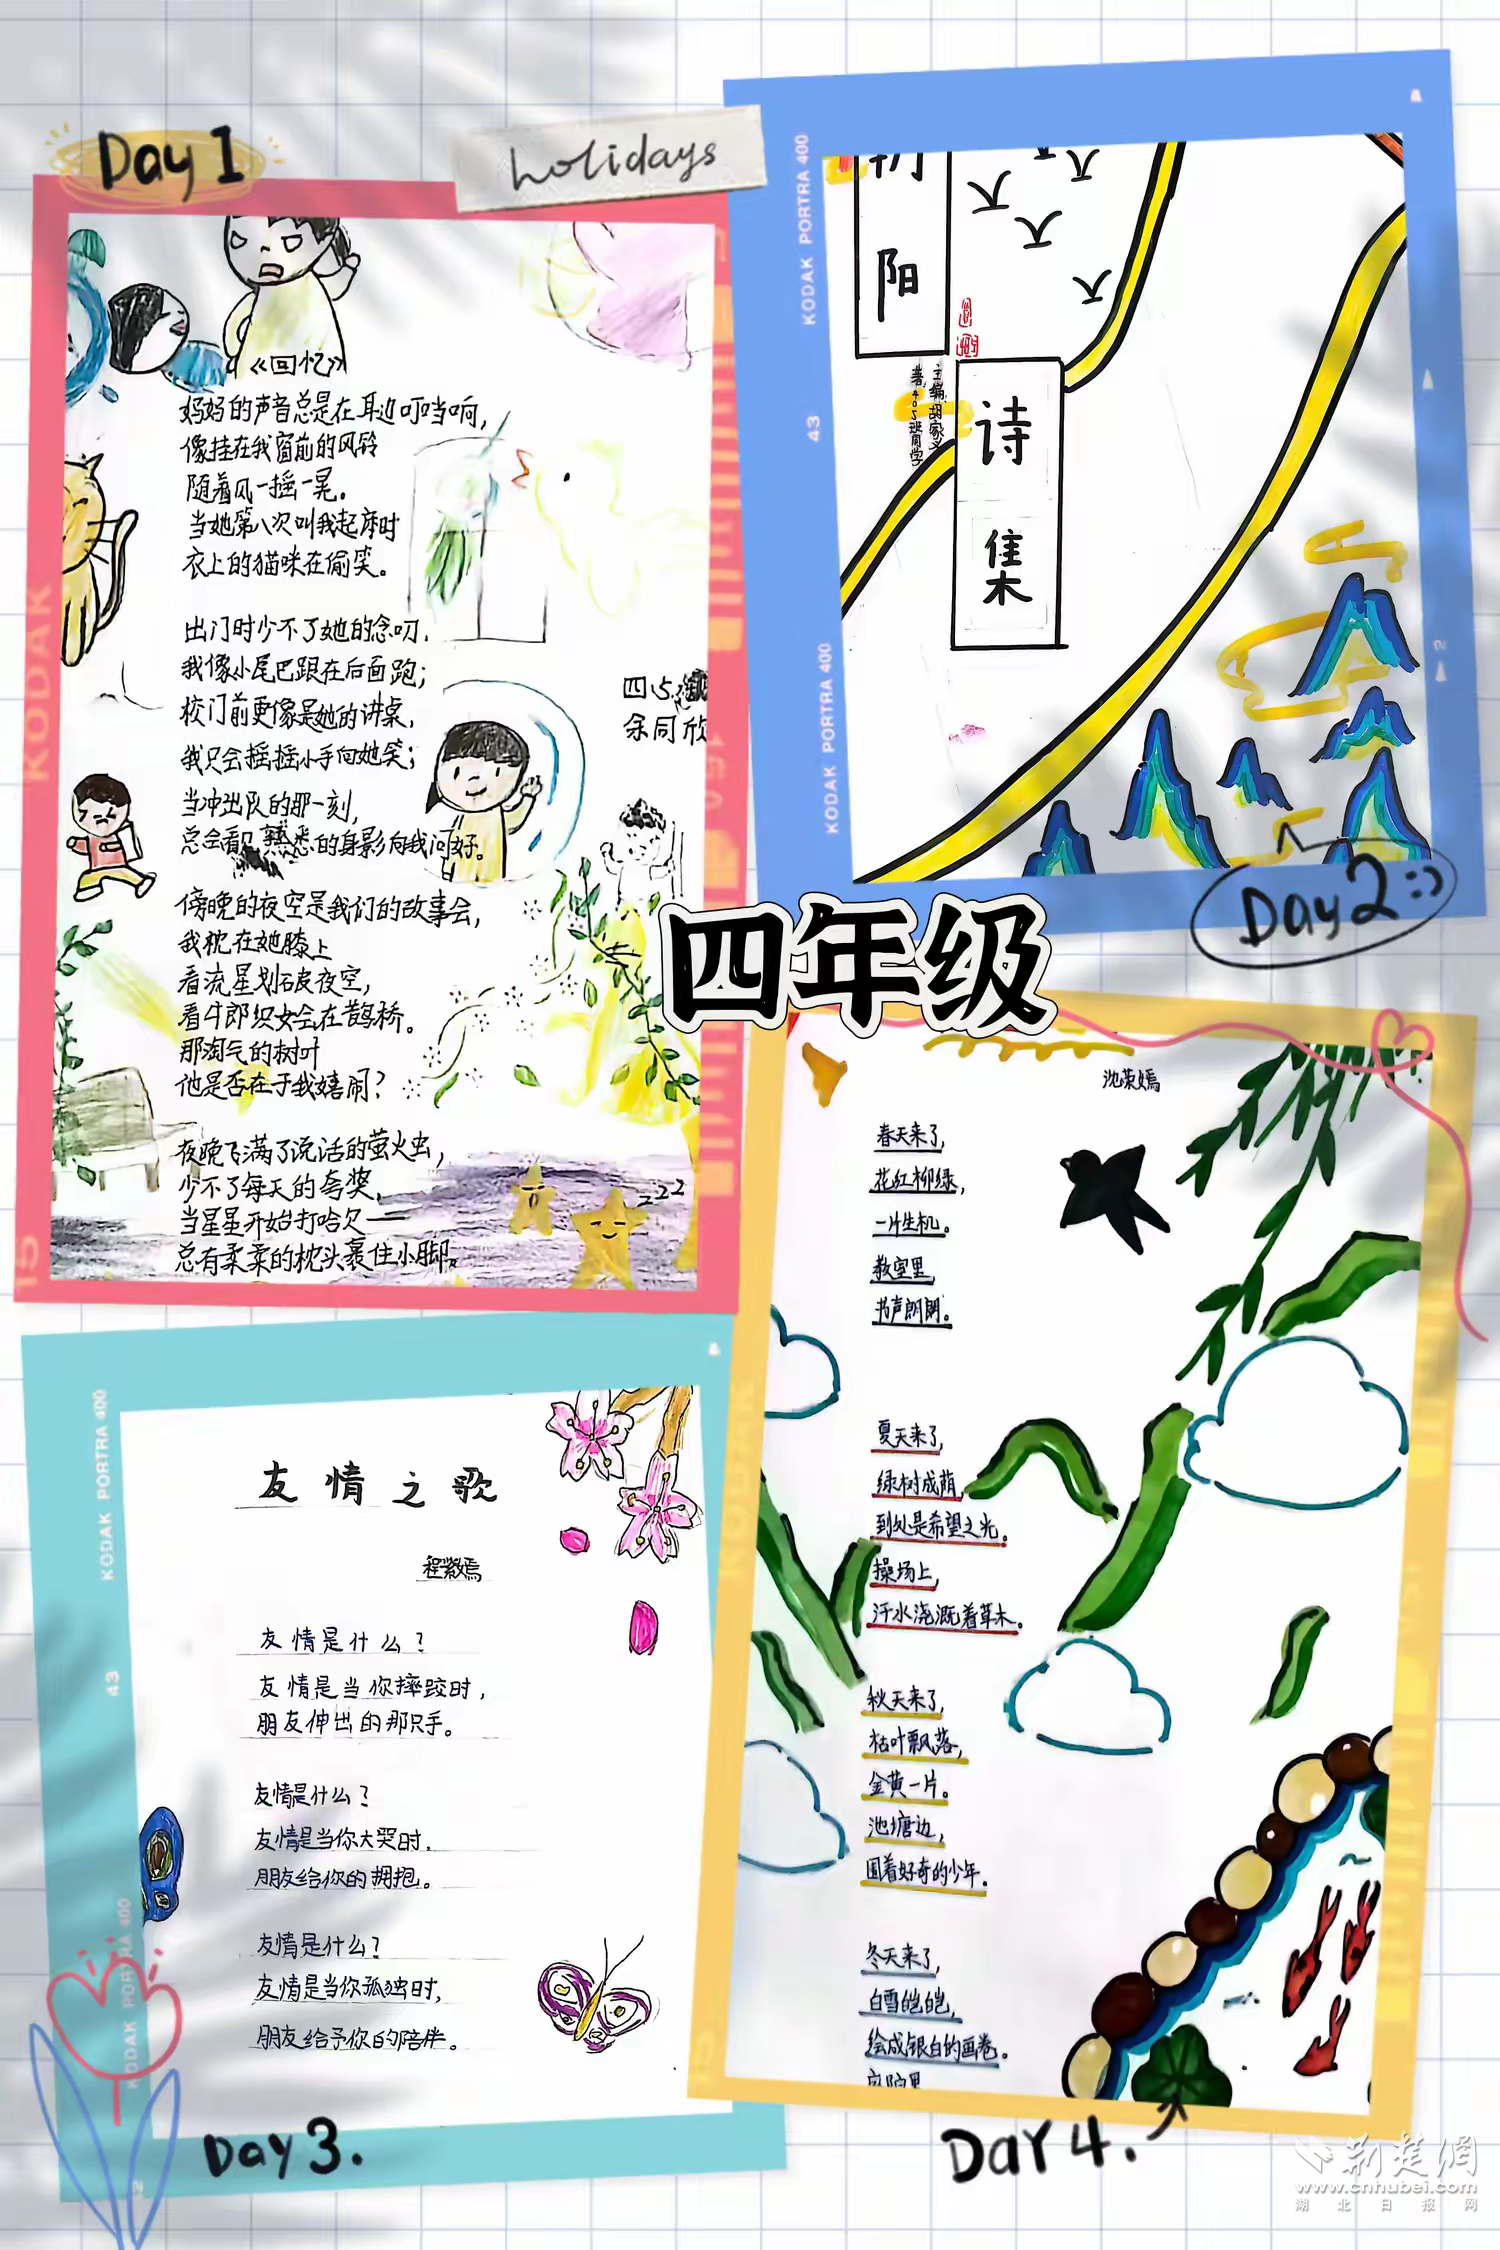 Day 1
holidays
《回忆》
妈妈的声音总是在耳边叮当响，
像挂在我窗前的风铃
随着风一摇一晃。
当她第八次叫我起床时
衣上的猫咪在偷笑。
出门时少不了她的念叨，
我像小尾巴跟在后面跑；
校门前更像是她的讲桌，
我只会摇摇小手向她笑；
当冲出队的那一刻，
总会看见熟悉的身影向我问好。
傍晚的夜空是我们的故事会，
我枕在她膝上
看流星划破夜空，
看牛郎织女会在鹊桥。
那淘气的树叶
他是否在于我嬉闹？
夜晚飞满了说话的萤火虫，
少不了每天的夸奖，
当星星开始打哈欠——
总有柔柔的枕头裹住小脚。
四（5）
余同欣
zzz
KODAK
15
KODAK PORTRA 400
43
KODAK PORTRA 400
2
阳
诗
集
主编：胡家
著：405班同学
Day 2 :)
四年级
KODAK PORTRA 400
43
KODAK PORTRA 400
2
友情之歌
友情是什么？
友情是当你摔跤时，
朋友伸出的那只手。
友情是什么？
友情是当你大哭时，
朋友给你的拥抱。
友情是什么？
友情是当你孤独时，
朋友给予你的陪伴。
Day 3.
沈荣嫣
春天来了，
花红柳绿，
一片生机。
教室里，
书声朗朗。
夏天来了，
绿树成荫，
到处是希望之光。
操场上，
汗水浇溉着草木。
秋天来了，
枯叶飘落，
金黄一片。
池塘边，
围着好奇的少年。
冬天来了，
白雪皑皑，
绘成银白的画卷。
Day 4.
荆楚网
www.cnhubei.com
湖北日报网